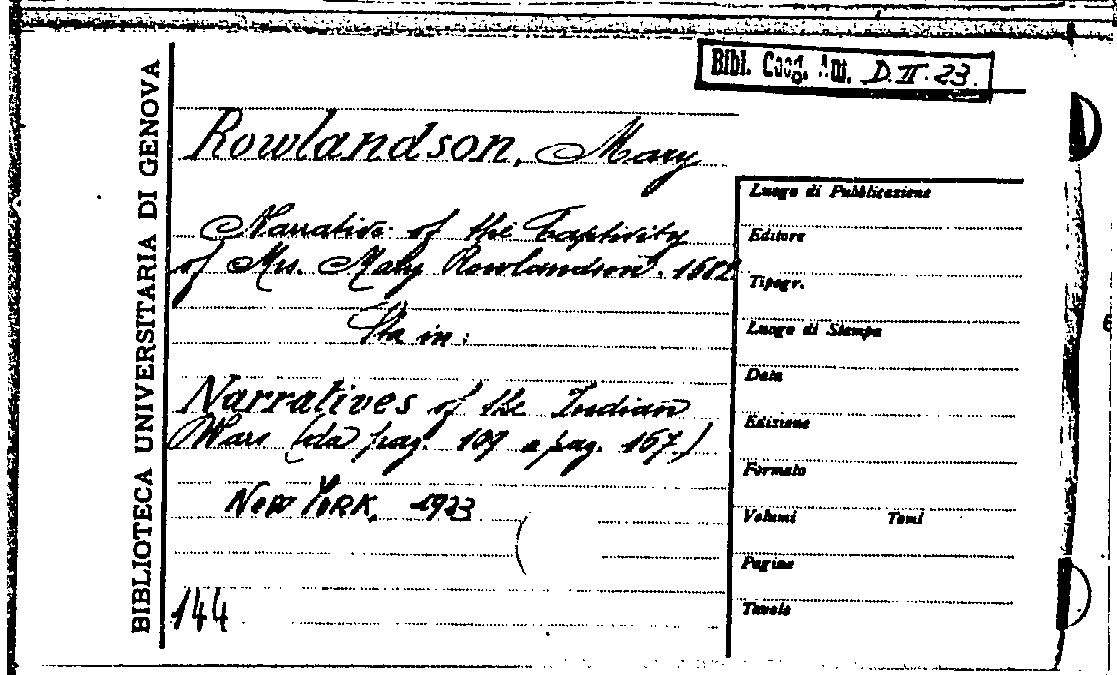 Bibl. Coog. Ant. D. II. 23.
BIBLIOTECA UNIVERSITARIA DI GENOVA
Rowlandson, Mary
Narrative of the Captivity
of Mrs. Mary Rowlandson. 1682
Sta in:
Narratives of the Indian
Wars (da pag. 109 a pag. 167.)
NEW YORK, 1923
144
Luogo di Pubblicazione
Editore
Tipogr.
Luogo di Stampa
Data
Edizione
Formato
Volumi Tomi
Pagine
Tavole